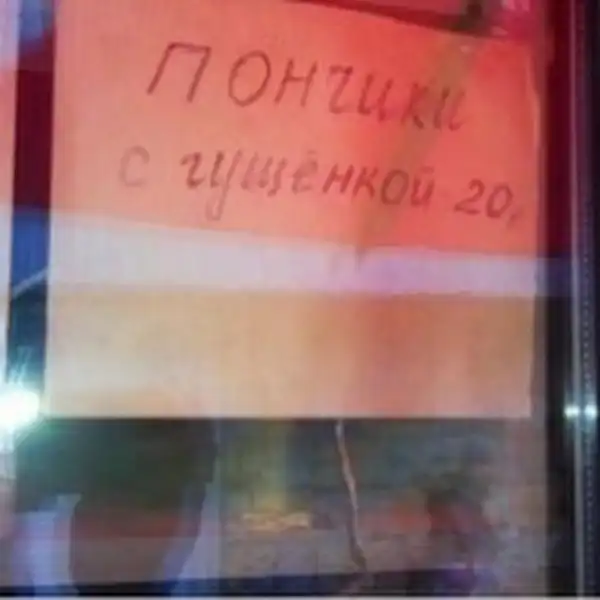 Пончики
с гущёнкой 20,